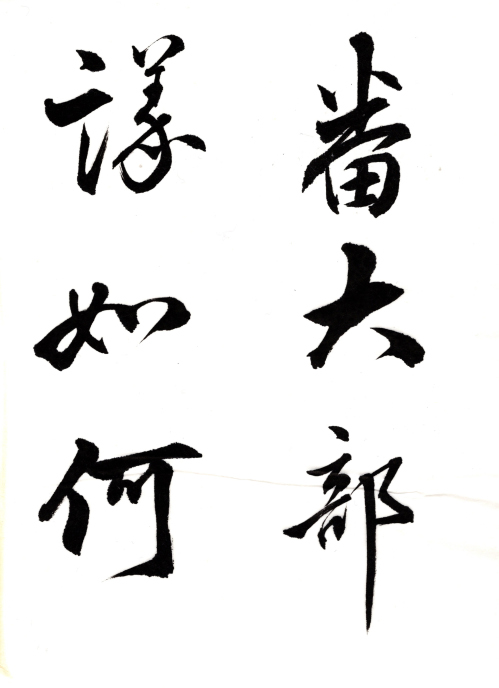 番大部
議如何